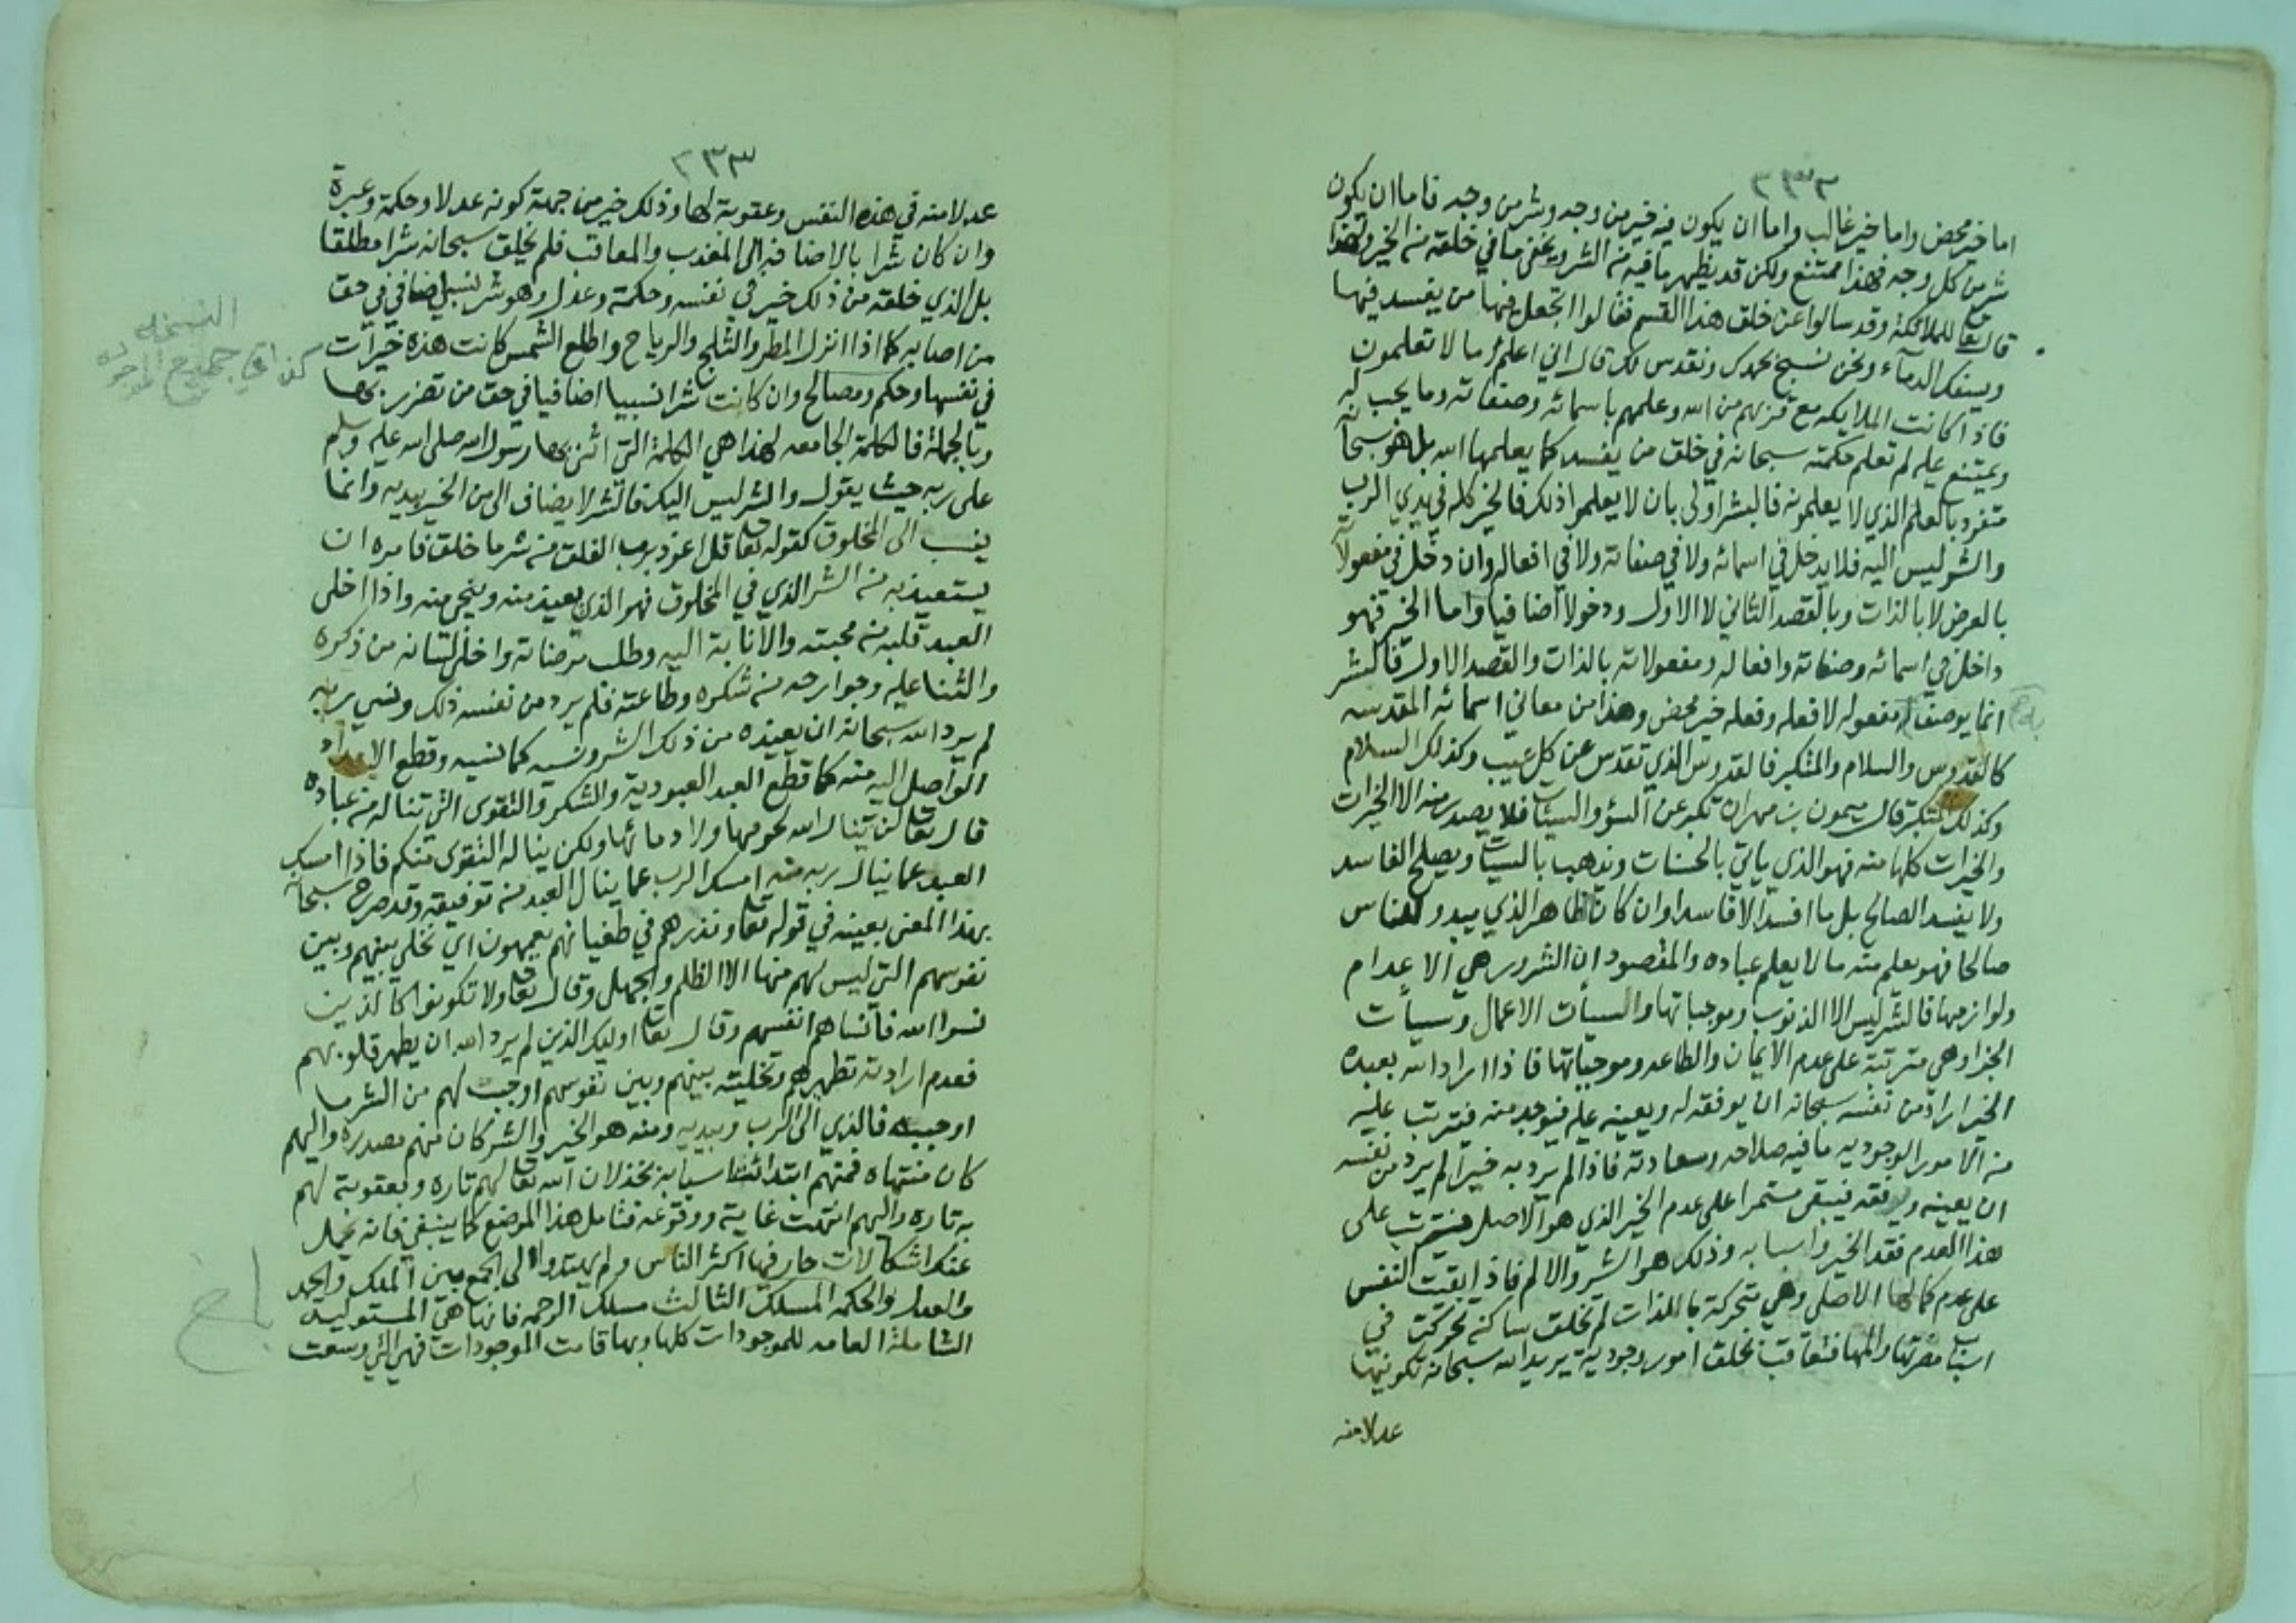 ٢٣٢
اما خير محض واما خير غالب واما ان يكون فيه خير من وجه وشر من وجه فاما ان يكون
شر من كل وجه فهذا ممتنع ولكن قد يظهر ما فيه من الشر ويخفى ما في خلقته من الخير ولهذا
قال تعا للملائكة وقد سالوا عن خلق هذا القسم فقالوا اتجعل فيها من يفسد فيها
ويسفك الدمآء ونحن نسبح بحمدك ونقدس لك قال اني اعلم ما لا تعلمون
فاذا كانت الملايكه مع قربهم من الله وعلمهم باسمائه وصفاته وما يجب له
ويمتنع عليه لم تعلم حكمته سبحانه في خلق من يفسد كما يعلمها الله بل هو سبحانه
متفرد بالعلم الذي لا يعلمونه فالبشر اولى بان لا يعلموا ذلك فالخير كله في يدي الرب
والشر ليس اليه فلا يدخل في اسمائه ولا في صفاته ولا في افعاله وان دخل في مفعولاته
بالعرض لا بالذات وبالقصد الثاني لا الاول ودخولا اضافيا واما الخير فهو
داخل في اسمائه وصفاته وافعاله ومفعولاته بالذات والقصد الاول فالشر
انما يوصف به مفعوله لا فعله وفعله خير محض وهذا من معاني اسمائه المقدسه
كالقدوس والسلام والمتكبر فالقدوس الذي تقدس عن كل عيب وكذلك السلام
وكذلك المتكبر قال ميمون بن مهران تكبر عن السؤ والسيئات فلا يصدر منه الا الخيرات
والخيرات كلها منه فهو الذي ياتي بالحسنات ويذهب بالسيئات ويصلح الفاسد
ولا يفسد الصالح بل ما افسد الا فاسدا وان كان ظاهر الذي يبدو للناس
صالحا فهو يعلم منه ما لا يعلم عباده والمقصود ان الشرور هي الاعدام
ولوازمها فالشر ليس الا الذنوب وموجباتها والسيأت الاعمال وسيأت
الجزا وهي مترتبة على عدم الايمان والطاعه وموجباتها فاذا اراد الله بعبده
الخير اراد من نفسه سبحانه ان يوفقه له ويعينه عليه فيوجد منه فيترتب عليه
من الامور الوجوديه ما فيه صلاحه وسعادته فاذا لم يرد به خيرا لم يرد من نفسه
ان يعينه ويوفقه فيبقى مستمرا على عدم الخير الذي هو الاصل فيترتب على
هذا العدم فقد الخير واسبابه وذلك هو الشر والالم فاذا بقيت النفس
على عدم كمالها الاصلي وهي متحركة بالذات لم تخلق ساكنه تحركت في
اسباب مضرتها والمها فتعاقب بخلق امور وجودية يريد الله سبحانه تكوينها
عدلا منه
٢٣٣
عدلا منه في هذه النفس وعقوبة لها وذلك خير من جهة كونه عدلا وحكمة وعبرة
وان كان شرا بالاضافه الى المعذب والمعاقب فلم يخلق سبحانه شرا مطلقا
بل الذي خلقه من ذلك خير في نفسه وحكمة وعدل وهو شر نسبي اضافي في حق
من اصابه كما اذا انزل المطر والثلج والرياح واطلع الشمس كانت هذه خيرات
في نفسها وحكم ومصالح وان كانت شرا نسبيا اضافيا في حق من تضرر بها
وبالجملة فالكلمة الجامعه لهذا هي الكلمة التي اثنى بها رسول الله صلى الله عليه وسلم
على ربه حيث يقول والشر ليس اليك فالشر لا يضاف الى من الخير بيديه وانما
ينسب الى المخلوق كقوله تعا قل اعوذ برب الفلق من شر ما خلق فامره ان
يستعيذ به من الشر الذي في المخلوق فهو الذي يعيذ منه وينجي منه واذا اخلى
العبد قلبه من محبته والانابة اليه وطلب مرضاته واخلى لسانه من ذكره
والثنا عليه وجوارحه من شكره وطاعته فلم يرد من نفسه ذلك ونسي ربه
لم يرد الله سبحانه ان يعيذه من ذلك الشر ونسيه كما نسيه وقطع الامداد
الواصل اليه منه كما قطع العبد العبودية والشكر والتقوى التي تناله من عباده
قال تعا لن ينال الله لحومها ولا دمائها ولكن يناله التقوى منكم فاذا امسك
العبد عما ينال ربه منه امسك الرب عما ينال العبد من توفيقه وقد صرح سبحانه
بهذا المعنى بعينه في قوله تعا ونذرهم في طغيانهم يعمهون اي نخلي بينهم وبين
نفوسهم التي ليس لهم منها الا الظلم والجهل وقال تعا ولا تكونوا كالذين
نسوا الله فأنساهم انفسهم وقال تعا اوليك الذين لم يرد الله ان يطهر قلوبهم
فعدم ارادته تطهيرهم وتخليته بينهم وبين نفوسهم اوجب لهم من الشر ما
اوجبه فالذي الى الرب وبيديه ومنه هو الخير والشر كان منهم مصدره واليهم
كان منتهاه فمنهم ابتدائت اسبابه بخذلان الله تعا لهم تاره وبعقوبة لهم
به تاره واليهم انتهت غايته ووقوعه فتامل هذا الموضع كما ينبغي فانه يحل
عنك اشكالات حار فيها اكثر الناس ولم يهتدوا الى الجمع بين الملك والحمد
والعدل والحكمه المسلك الثالث مسلك الرحمه فانها هي المستوليه
الشاملة العامه للموجودات كلها وبها قامت الموجودات فهي التي وسعت
كذا في جميع
النسخه
بلغ